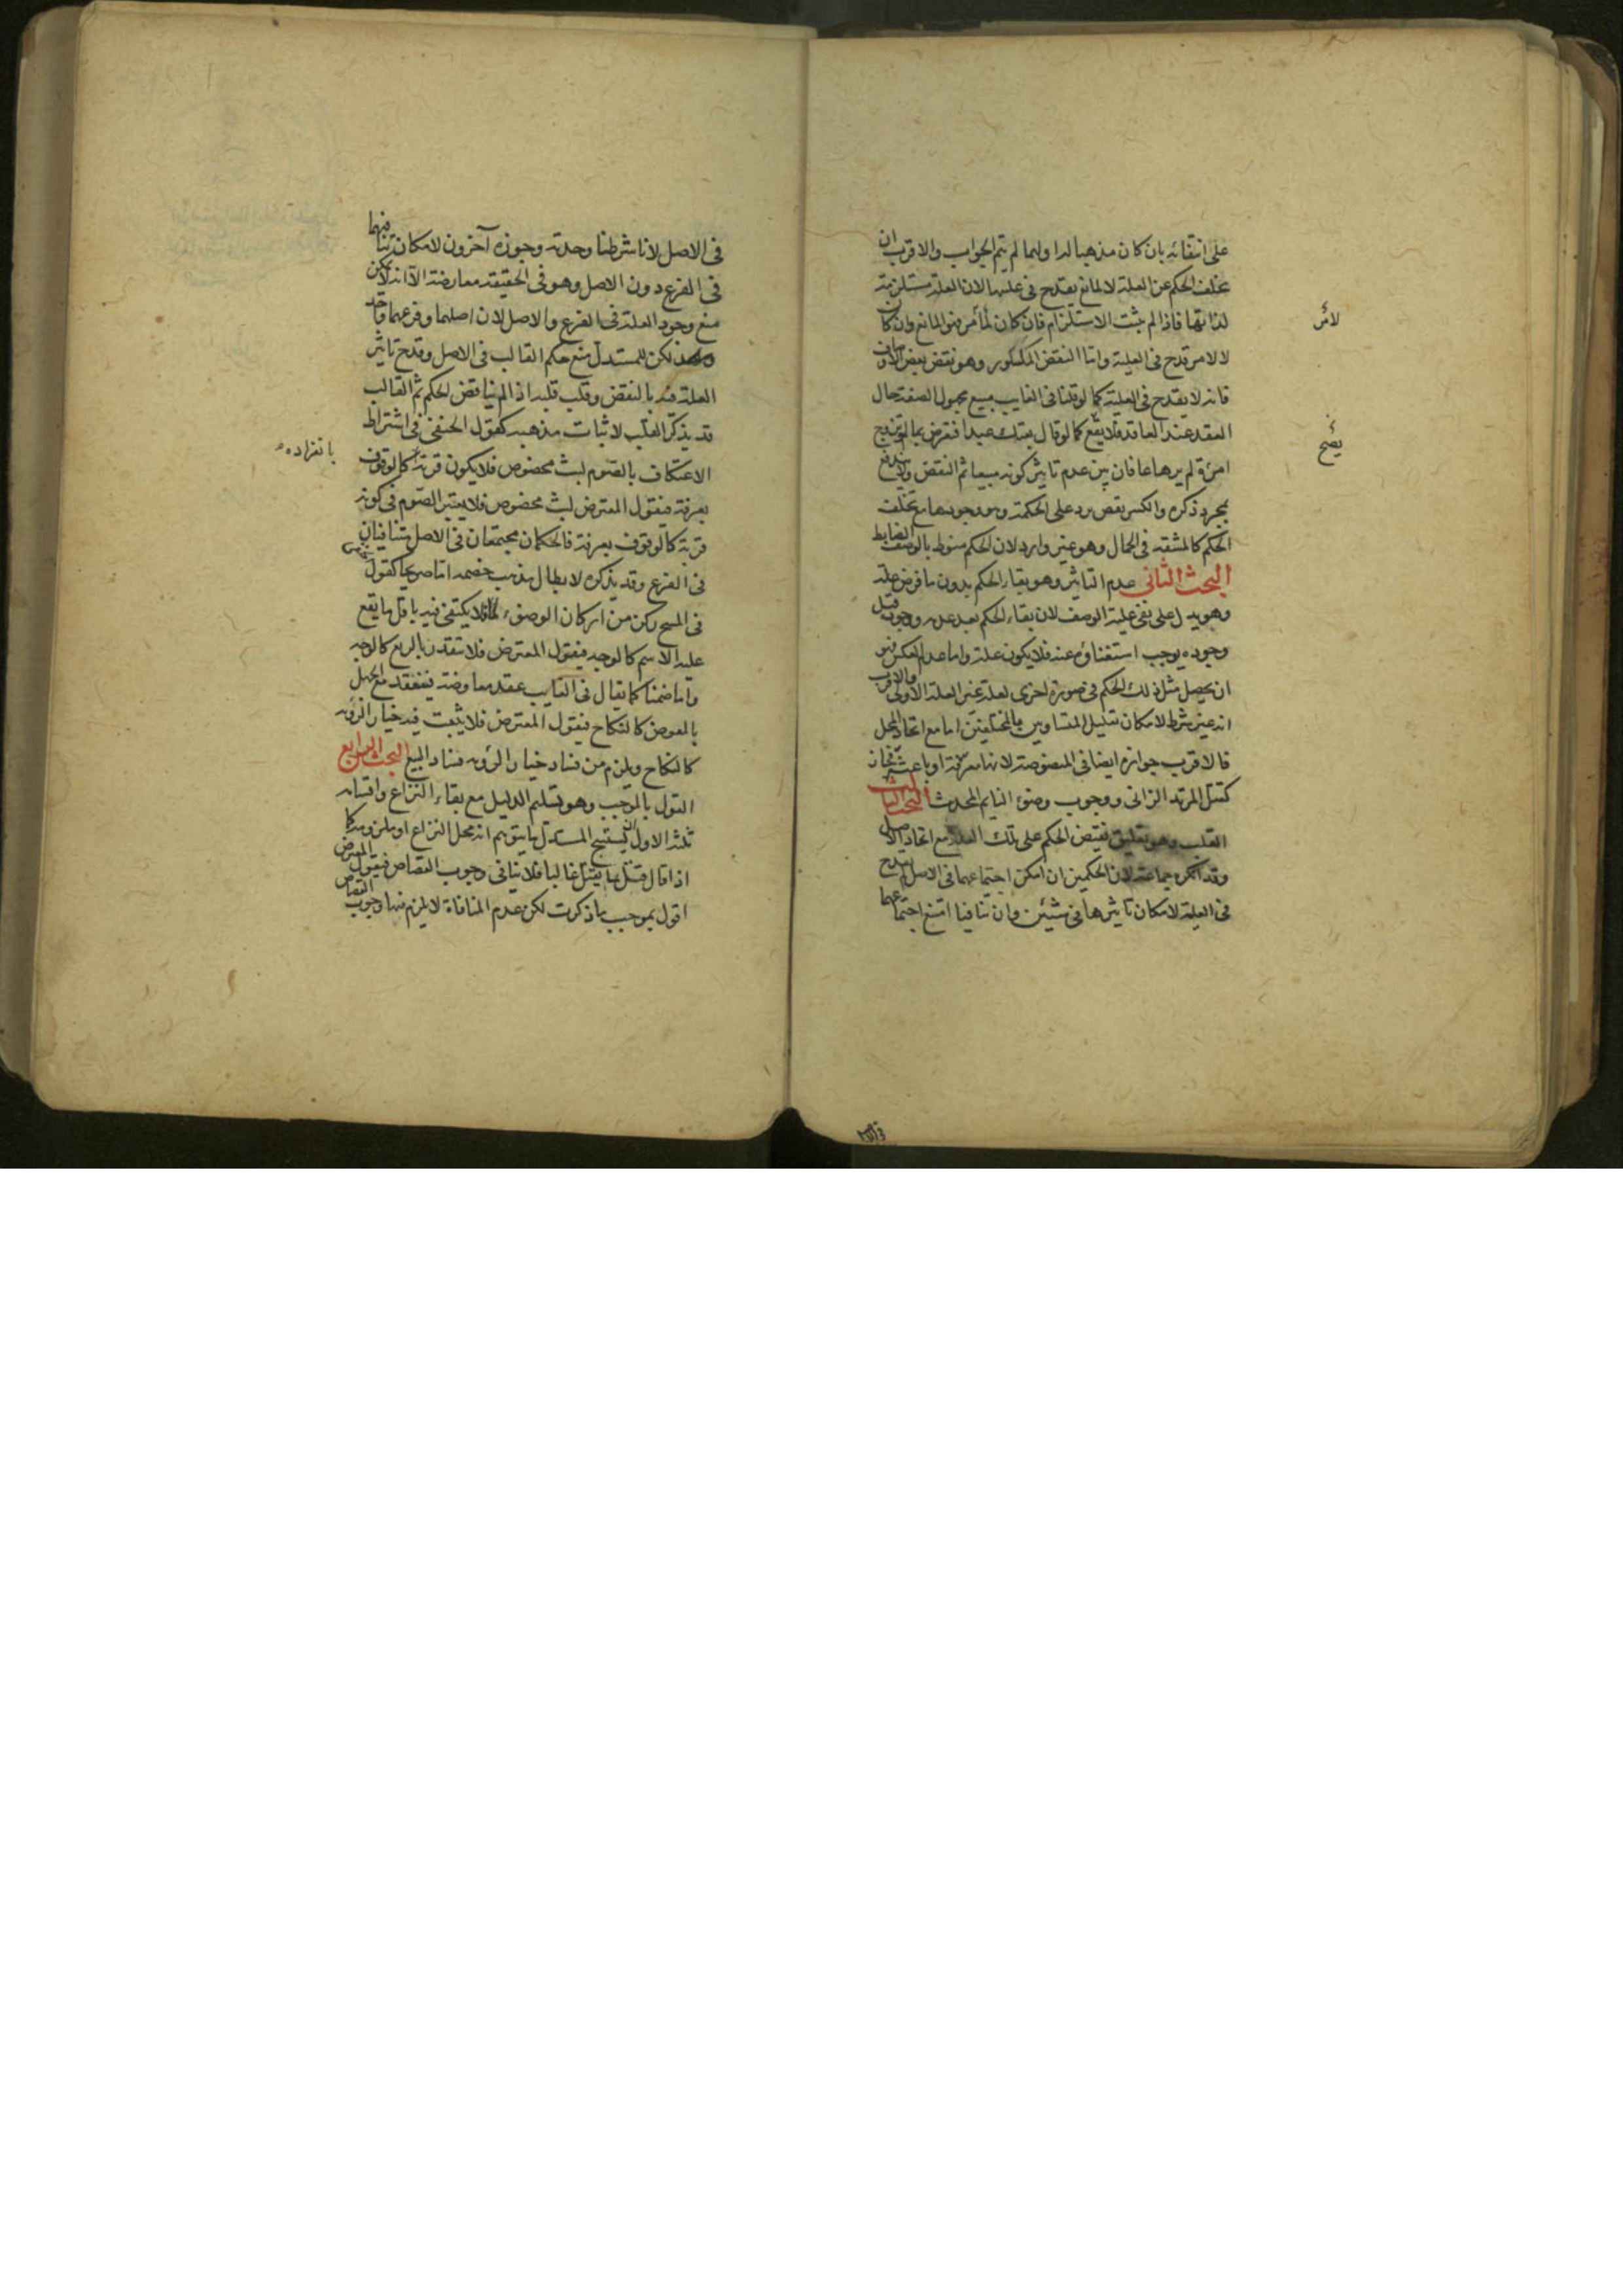 على انتفائه بان كان مذهبا لهما لم يتم الجواب والاقرب ان
تخلف الحكم عن العلة لا لمانع يقدح في عليتها لان العلة مستلزمة
لذاتها فاذا لم يثبت الاستلزام فان كان لأمر فهو المانع وان كان
لا لامر قدح في العلية واما النقض المكسور وهو نقض بعض الاوصاف
فانه لا يقدح في العلية كما لو قلنا في الغايب مبيع مجهول الصفة حال
العقد عند العاقد فلا يصح كما لو قال بعتك عبدا فنقض بما لو تزوج
امرءة لم يرها فان بين عدم تاثير كونه مبيعا ثم النقض ولا يندفع
بمجرد ذكره والكسر نقض يرد على الحكمة وهو وجودها مع تخلف
الحكم كالمشقة في الحمال وهو غير وارد لان الحكم منوط بالوصف الضابط
البحث الثاني عدم التاثير وهو بقاء الحكم بدون ما فرض علة
وهو يدل على نفي علية الوصف لان بقاء الحكم بعد عدمه ووجوده قبل
وجوده يوجب استغناؤه عنه فلا يكون علة واما عدم العكس فهو
ان يحصل مثل ذلك الحكم في صورة اخرى لعلة غير العلة الاولى والاقرب
انه غير شرط لامكان تعليل المتساويين بالمختلفين اما مع اتحاد المحل
فالاقرب جوازه ايضا في المنصوصة لانها معرفة او باعثة فجاز
كقتل المرتد الزاني ووجوب وضوء النايم المحدث البحث الثالث
القلب وهو تعليق نقيض الحكم على تلك العلة مع اتحاد الاصل
وقد انكره جماعة لان الحكمين ان امكن اجتماعهما في الاصل لم يقدح
في العلة لامكان تاثيرها في شيئين وان تنافيا امتنع اجتماعهما
لأمر
يصح
في الاصل لانا شرطنا وحدته وجوزه آخرون لامكان تنافيهما
في الفرع دون الاصل وهو في الحقيقة معارضة الا انه لا يمكن
منع وجود العلة في الفرع والاصل لان اصلهما وفرعهما واحد
لكن للمستدل منع حكم القالب في الاصل وقدح تاثير
العلة فيه بالنقض وقلب قلبه اذا لم يناقض الحكم ثم القالب
قد يذكر القلب لاثبات مذهبه كقول الحنفي في اشتراط
الاعتكاف بالصوم لبث مخصوص فلا يكون قربة كالوقوف
بانفراده
بعرفة فيقول المعترض لبث مخصوص فلا يعتبر الصوم في كونه
قربة كالوقوف بعرفة فالحكمان مجتمعان في الاصل متنافيان
في الفرع وقد يذكره لابطال مذهب خصمه اما صريحا كقول
في المسح ركن من اركان الوضوء فلا يكتفى فيه باقل ما يقع
عليه الاسم كالوجه فيقول المعترض فلا يتقدر بالربع كالوجه
واما ضمنا كما يقال في الغايب عقد معاوضة فينعقد مع الجهل
بالعوض كالنكاح فيقول المعترض فلا يثبت فيه خيار الرؤية
كالنكاح ويلزم من فساد خيار الرؤية فساد البيع البحث الرابع
القول بالموجب وهو تسليم الدليل مع بقاء النزاع واقسامه
ثلثة الاول ان يستنتج المستدل ما يتوهم انه محل النزاع او ملزومه كما
اذا قال قتل بما يقتل غالبا فلا ينافي وجوب القصاص فيقول المعترض
اقول بموجب ما ذكرت لكن عدم المنافاة لا يلزم منها وجوب القصاص